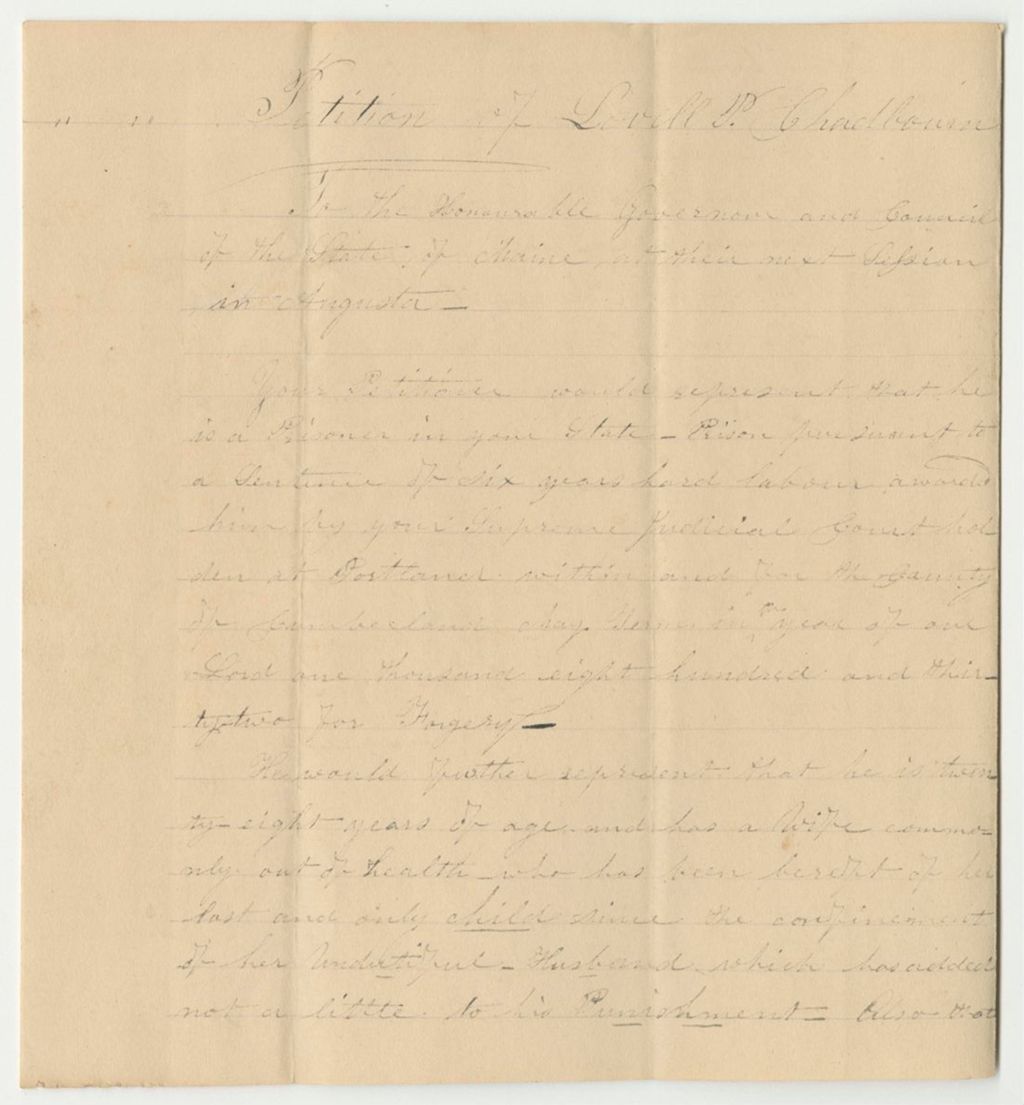 " " Petition of Lovell P. Chadbourn
To the Honourable Governour and Council
of the State of Maine at their next Session
in Augusta —
Your Petitioner would represent that he
is a Prisoner in your State - Prison pursuant to
a Sentence of six years hard labour awarded
him by your Supreme Judicial Court hol
den at Portland within and for the County
of Cumberland May Term in the year of our
Lord one thousand eight hundred and thir-
ty-two for Forgery —
He would further represent that he is twen
ty-eight years of age and has a Wife commo-
nly out of health who has been bereft of her
last and only child since the confinement
of her Undutiful - Husband which has added
not a little to his Punishment - Also that